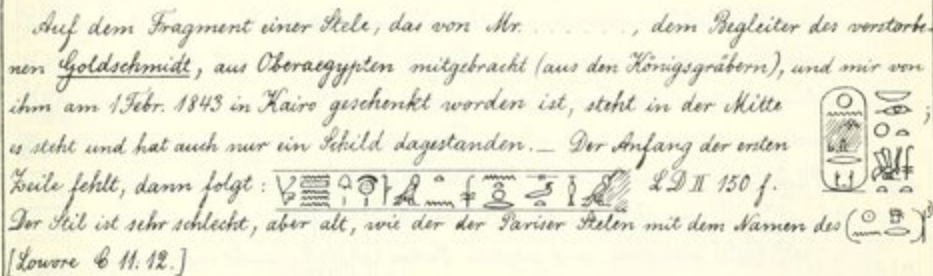 Auf dem Fragment einer Stele, das von Mr. . . . . . . . , dem Begleiter des verstorbe-
nen Goldschmidt, aus Oberaegypten mitgebracht (aus den Königsgräbern), und mir von
ihm am 1 Febr. 1843 in Kairo geschenkt worden ist, steht in der Mitte ;
es steht und hat auch nur ein Schild dagestanden. _ Der Anfang der ersten
Zeile fehlt, dann folgt : L D II 150 f.
Der Stil ist sehr schlecht, aber alt, wie der der Pariser Stelen mit dem Namen des
[Louvre C 11. 12.]